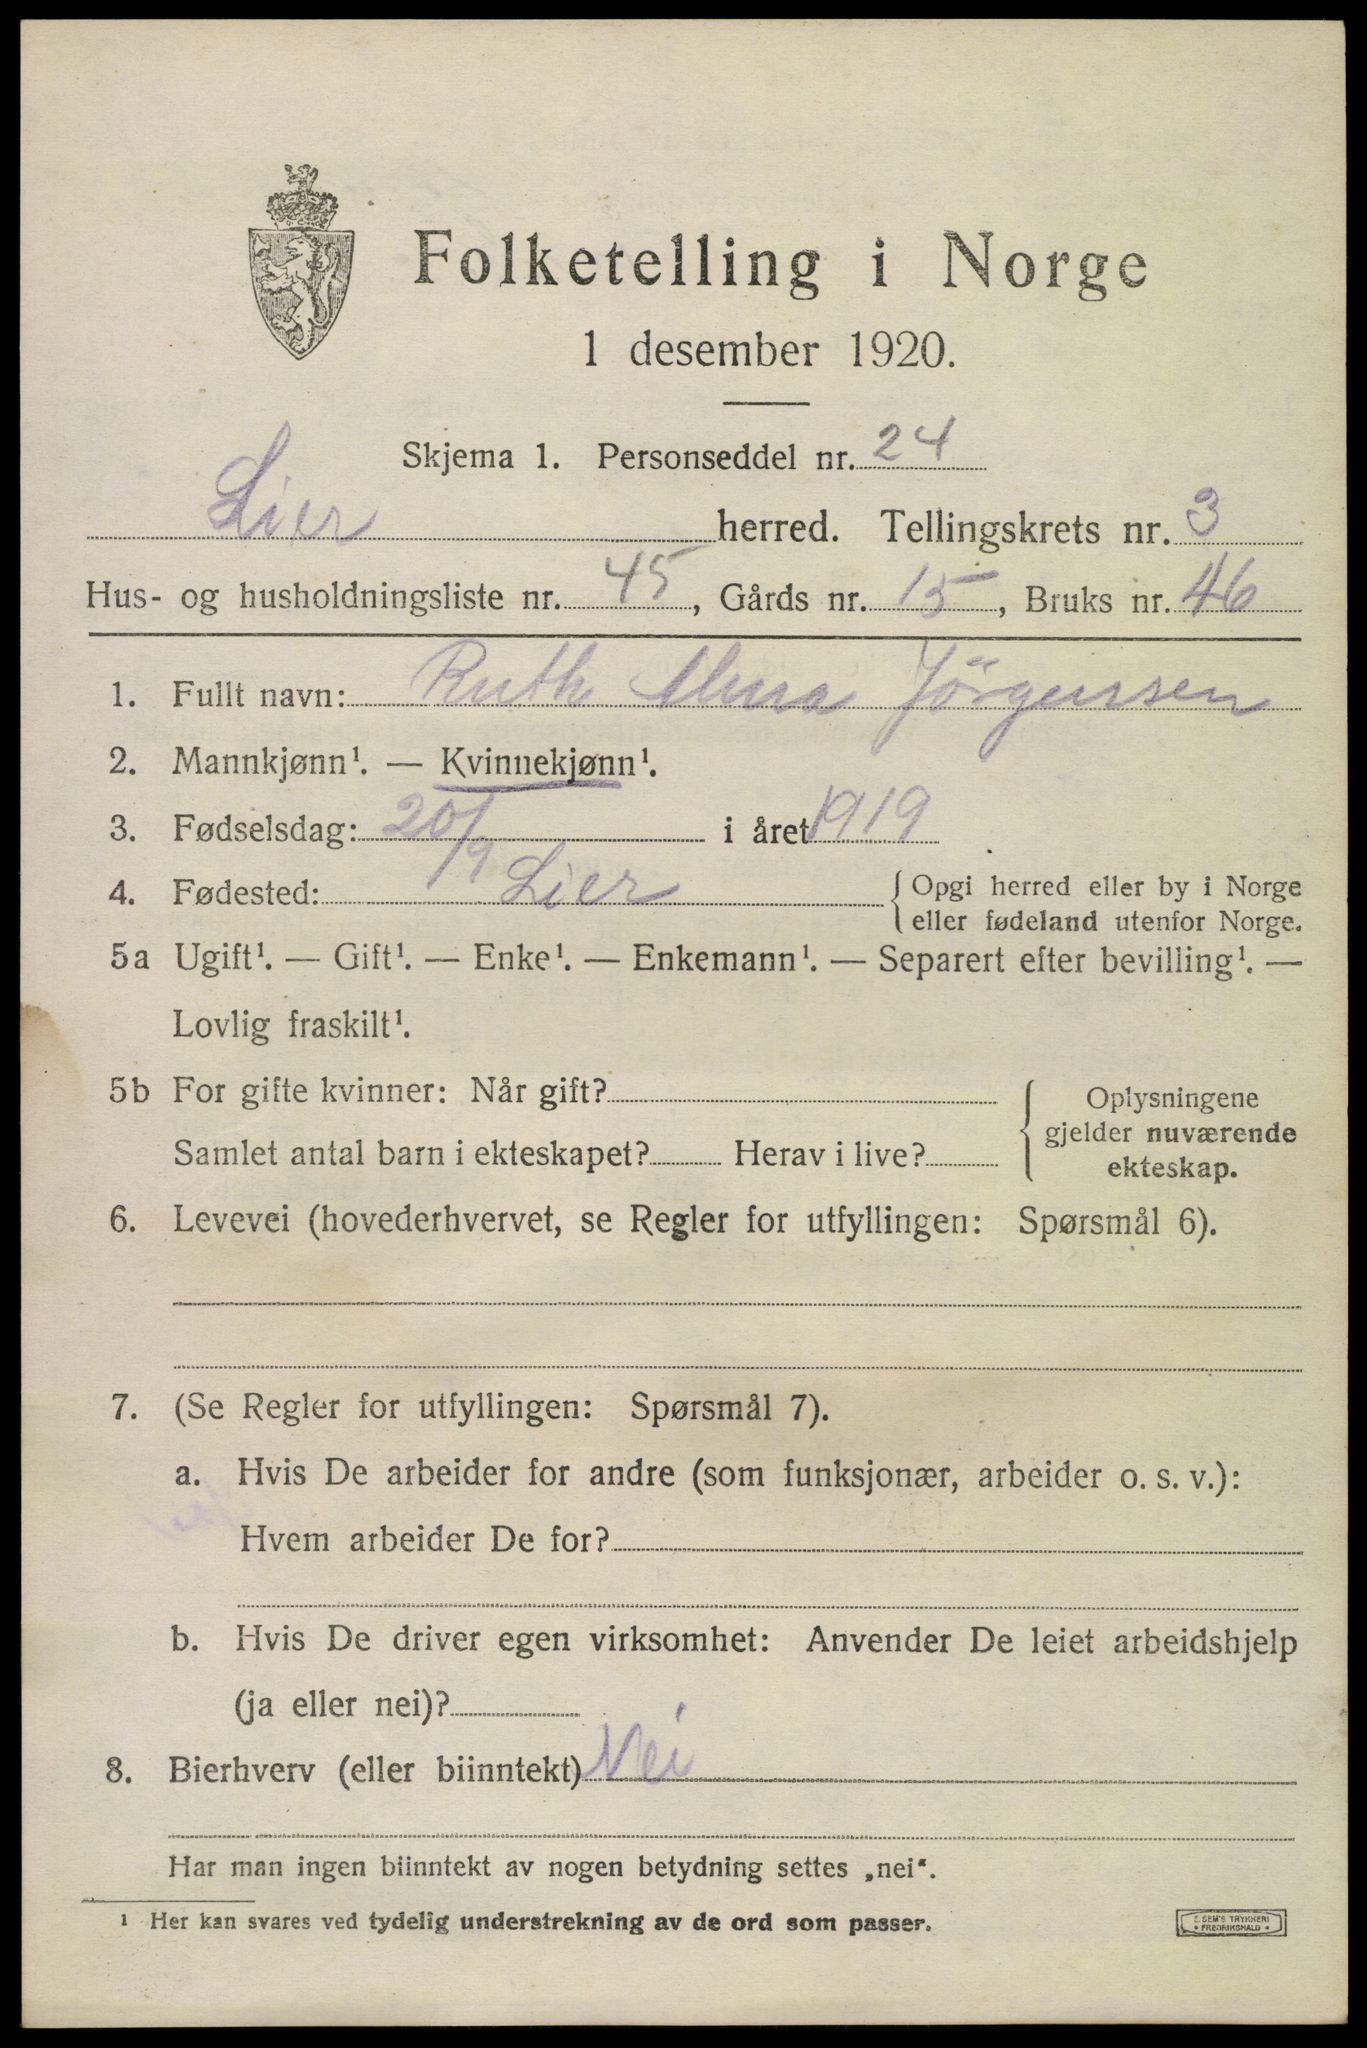 Folketelling i Norge
1 desember 1920.
Skjema 1. Personseddel nr. 24
Lier herred. Tellingskrets nr. 3
Hus- og husholdningsliste nr. 45, Gårds nr. 15, Bruks nr. 46
1. Fullt navn: Ruth Jörgenssen
2. Mannkjønn¹. — Kvinnekjønn¹.
3. Fødselsdag: 20/9 i året 1919
4. Fødested: Lier { Opgi herred eller by i Norge
eller fødeland utenfor Norge.
5a Ugift¹. — Gift¹. — Enke¹. — Enkemann¹. — Separert efter bevilling¹. —
Lovlig fraskilt¹.
5b For gifte kvinner: Når gift?
Samlet antal barn i ekteskapet? Herav i live?
{ Oplysningene
gjelder nuværende
ekteskap.
6. Levevei (hovederhvervet, se Regler for utfyllingen: Spørsmål 6).
7. (Se Regler for utfyllingen: Spørsmål 7).
a. Hvis De arbeider for andre (som funksjonær, arbeider o. s. v.):
Hvem arbeider De for?
b. Hvis De driver egen virksomhet: Anvender De leiet arbeidshjelp
(ja eller nei)?
8. Bierhverv (eller biinntekt) Nei
Har man ingen biinntekt av nogen betydning settes „nei".
¹ Her kan svares ved tydelig understrekning av de ord som passer.
E. SEM'S TRYKKERI
• FREDRIKSHALD •